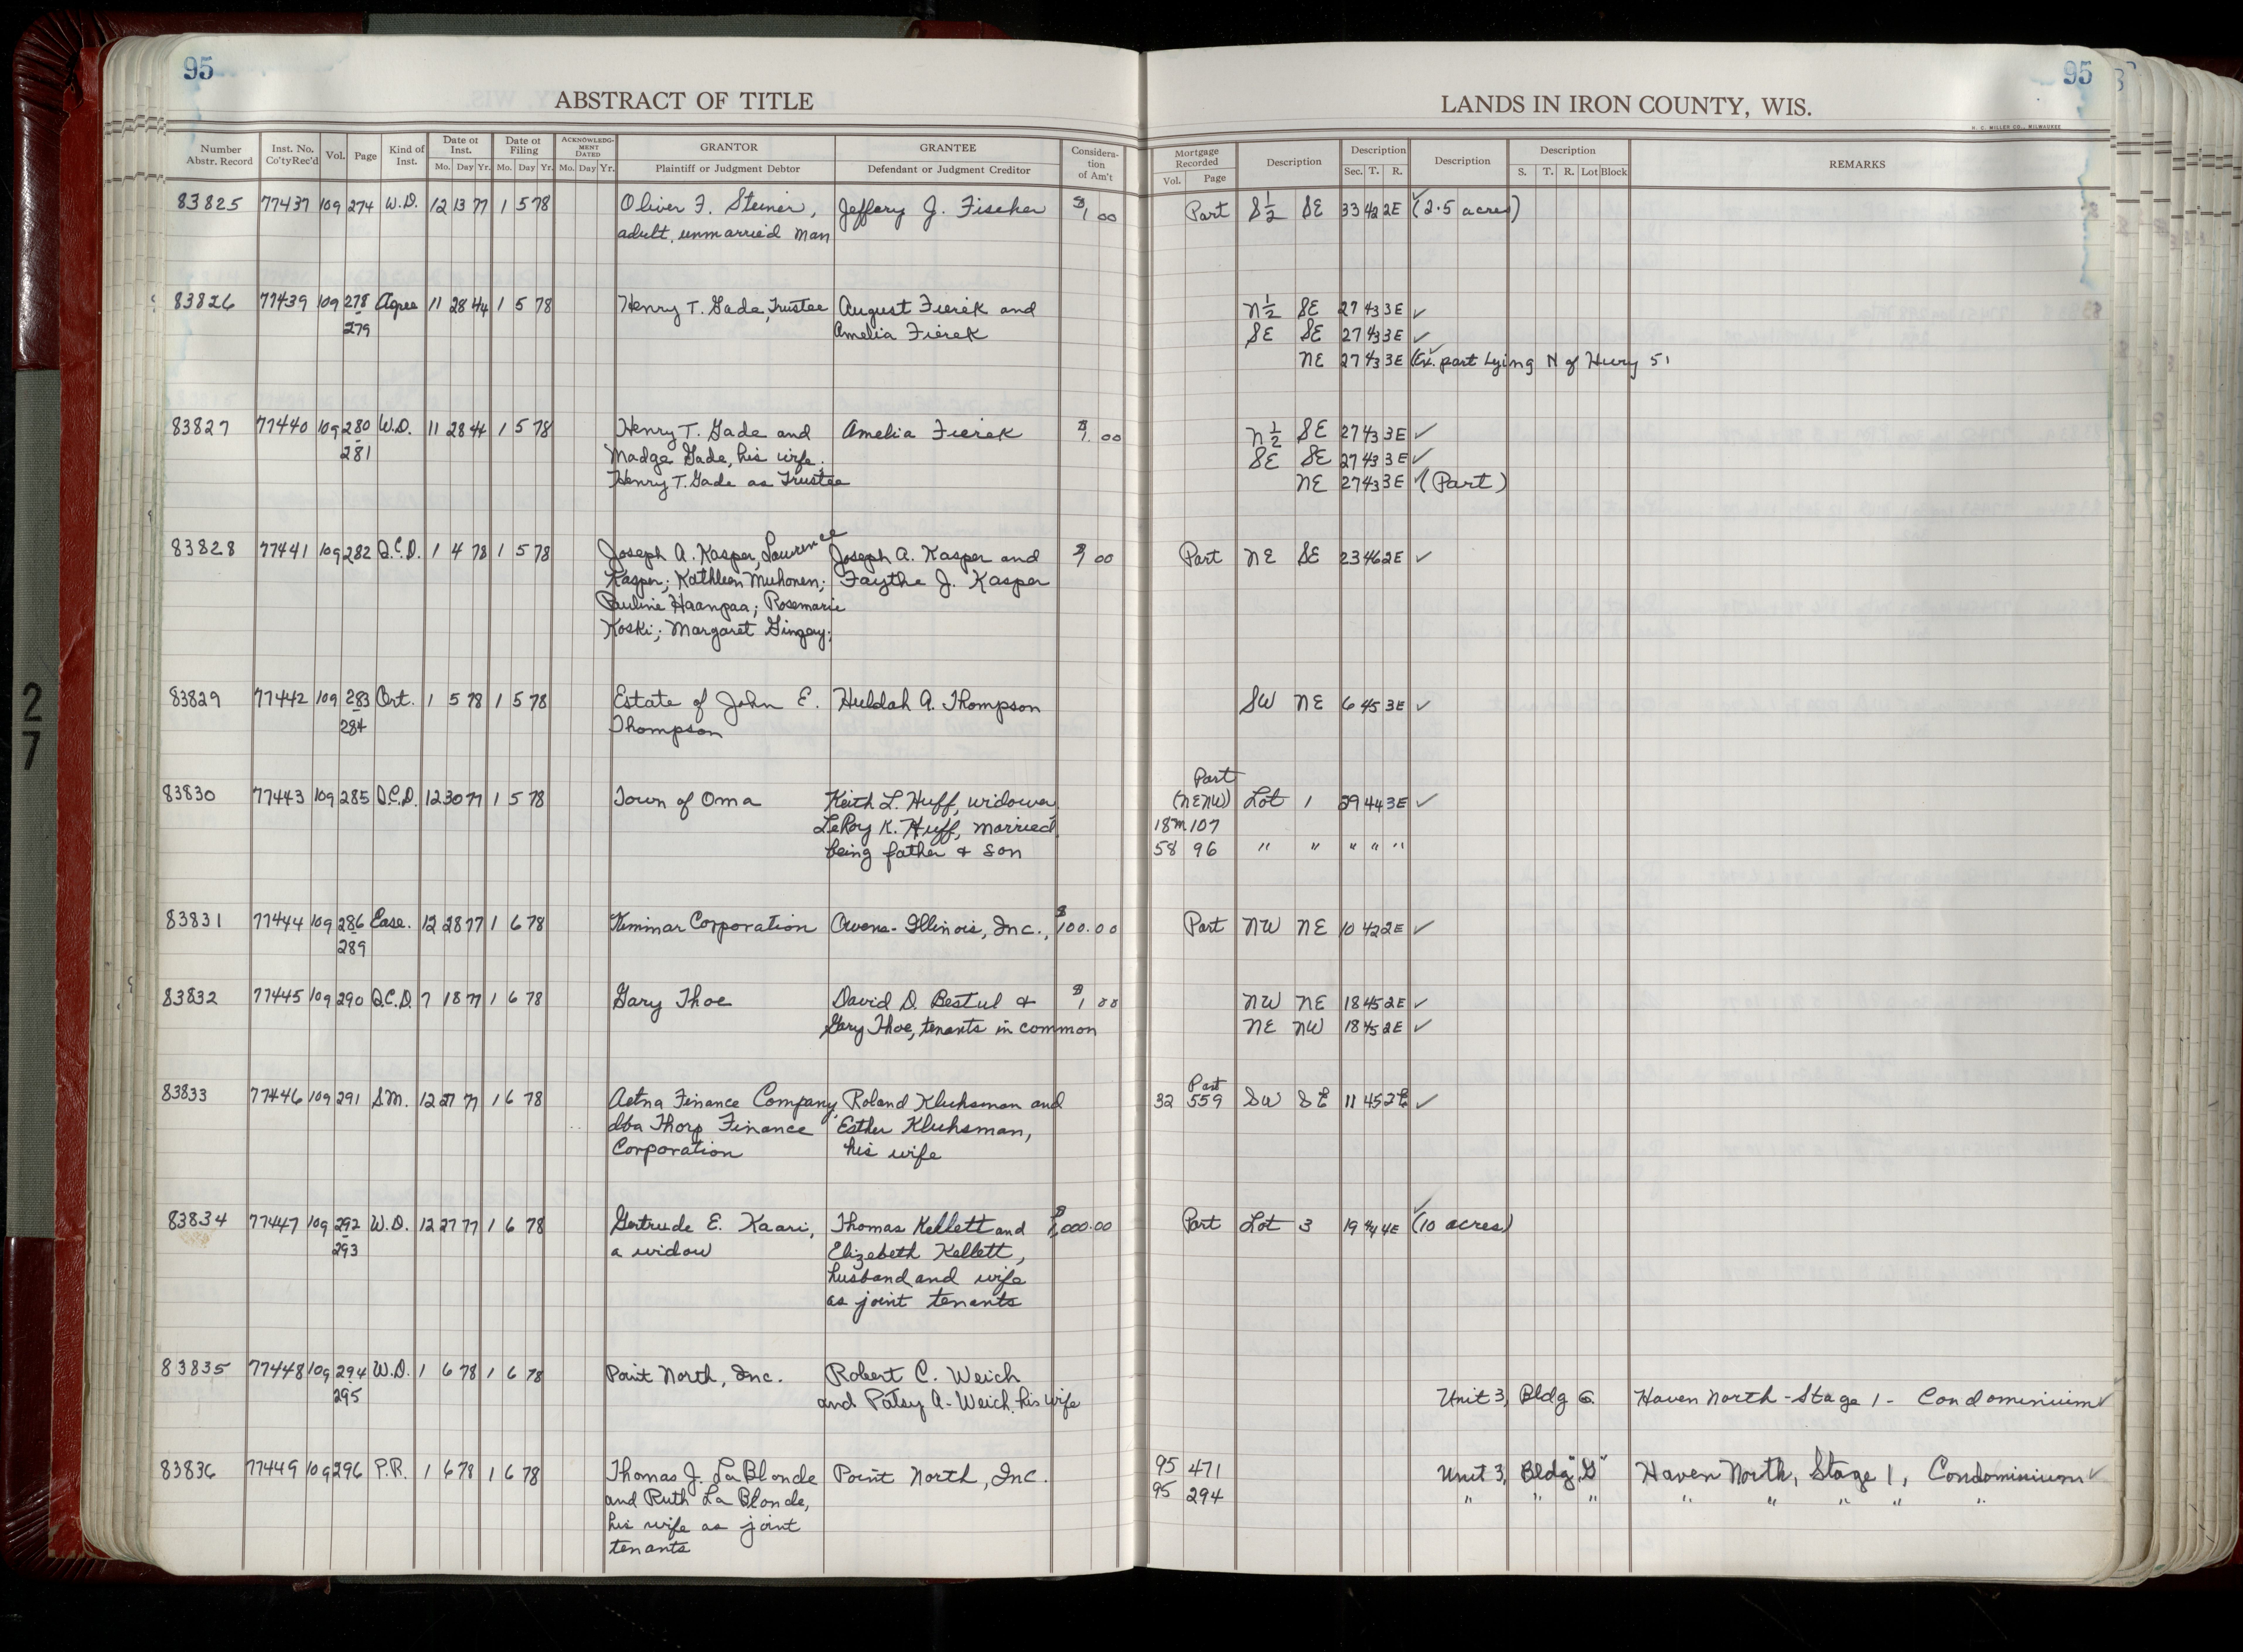 95
ABSTRACT OF TITLE
Number Abstr. Record | Inst. No. Co'ty Rec'd | Vol. | Page | Kind of Inst. | Date of Inst. Mo. Day Yr. | Date of Filing Mo. Day Yr. | ACKNOWLEDGMENT DATED Mo. Day Yr. | GRANTOR Plaintiff or Judgment Debtor | GRANTEE Defendant or Judgment Creditor | Consideration of Am't
95
LANDS IN IRON COUNTY, WIS.
H. C. MILLER CO., MILWAUKEE
Mortgage Recorded Vol. Page | Description | Description Sec. T. R. | Description | Description S. T. R. Lot Block | REMARKS
83825 77437 109 274 W.D. 12 13 77 1 5 78 Oliver F. Steiner, Jeffery J. Fischer $1 00 Part S½ SE 33 42 2E ✓(2.5 acres)
adult, unmarried man
83826 77439 109 278 Agree 11 28 44 1 5 78 Henry T. Gade, Trustee August Fierek and N½ SE 27 43 3E ✓
279 Amelia Fierek SE SE 27 43 3E ✓
NE 27 43 3E ✓(Ex. part lying N of Hwy 51
83827 77440 109 280 W.D. 11 28 44 1 5 78 Henry T. Gade and Amelia Fierek $1.00 N½ SE 27 43 3E ✓
281 Madge Gade, his wife. SE SE 27 43 3E ✓
Henry T. Gade as Trustee NE 27 43 3E ✓(Part)
83828 77441 109 282 Q.C.D. 1 4 78 1 5 78 Joseph A. Kasper, Lawrence Joseph A. Kasper and $1 00 Part NE SE 23 46 2E ✓
Kasper; Kathleen Muhonen; Faythe J. Kasper
Pauline Haanpaa; Rosemarie
Koski; Margaret Gingery;
83829 77442 109 283 Crt. 1 5 78 1 5 78 Estate of John E. Huldah A. Thompson SW NE 6 45 3E ✓
284 Thompson
Part
83830 77443 109 285 Q.C.D. 12 30 77 1 5 78 Town of Oma Keith L. Huff, widower (NENW) Lot 1 29 44 3E ✓
LeRoy K. Huff, married 18m 107
being father & son 58 96 " " " " "
83831 77444 109 286 Ease. 12 28 77 1 6 78 Kimmar Corporation Owens-Illinois, Inc., $100.00 Part NW NE 10 42 2E ✓
289
83832 77445 109 290 Q.C.D. 7 18 77 1 6 78 Gary Thoe David D. Bestul & $1 00 NW NE 18 45 2E ✓
Gary Thoe, tenants in common NE NW 18 45 2E ✓
Part
83833 77446 109 291 SM. 12 27 77 1 6 78 Aetna Finance Company Roland Kluhsman and 32 559 SW SE 11 45 2E ✓
dba Thorp Finance Esther Kluhsman,
Corporation his wife
83834 77447 109 292 W.D. 12 27 77 1 6 78 Gertrude E. Kaari, Thomas Kellett and 000.00 Part Lot 3 19 44 4E ✓(10 acres)
293 a widow Elizabeth Kellett,
husband and wife
as joint tenants
83835 77448 109 294 W.D. 1 6 78 1 6 78 Point North, Inc. Robert C. Weich
295 and Patsy A. Weich, his wife Unit 3, Bldg G. Haven North - Stage 1 - Condominium ✓
83836 77449 109 296 P.R. 1 6 78 1 6 78 Thomas J. LaBlonde Point North, Inc. 95 471 Unit 3, Bldg "G" Haven North, Stage 1, Condominium ✓
and Ruth LaBlonde, 95 294 " " " " " " " "
his wife as joint
tenants
27